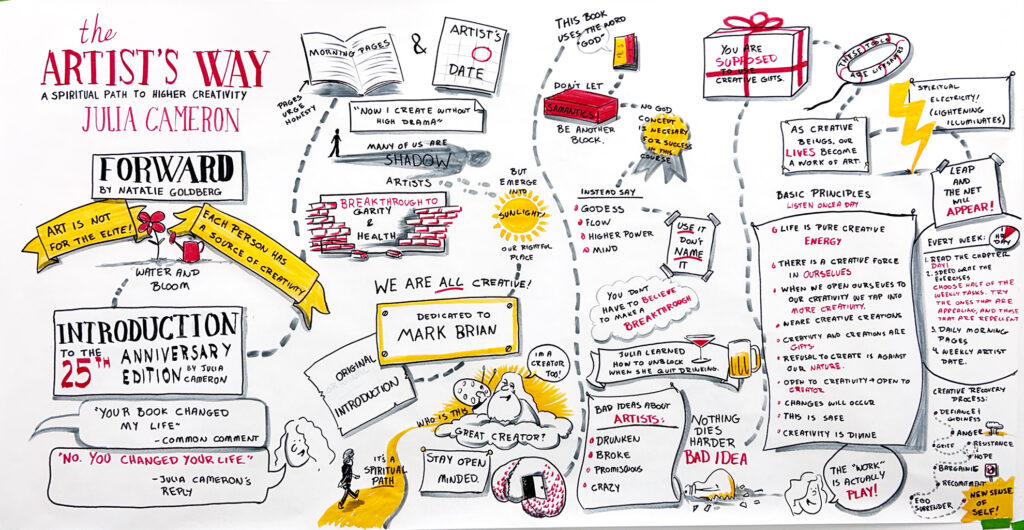 the
ARTIST'S WAY
A SPIRITUAL PATH TO HIGHER CREATIVITY
JULIA CAMERON
FORWARD
BY NATATIE GOLDBERG
ART IS NOT
FOR THE ELITE!
EACH PERSON HAS
A SOURCE OF CREATIVITY
WATER AND
BLOOM
INTRODUCTION
TO THE
25TH
ANNIVERSARY
EDITION BY JULIA
CAMERON
"YOUR BOOK CHANGED
MY LIFE"
- COMMON COMMENT
"NO. YOU CHANGED YOUR LIFE."
- JULIA CAMERON'S
REPLY
MORNING PAGES
&
ARTIST'S
DATE
PAGES
URGE
HONESTY
"NOW I CREATE WITHOUT
HIGH DRAMA"
MANY OF US ARE
SHADOW
ARTISTS
BUT
EMERGE
INTO
SUNLIGHT!
OUR RIGHTFUL
PLACE
BREAKTHROUGH TO
CARITY
&
HEALTH
WE ARE ALL CREATIVE!
DEDICATED TO
MARK BRIAN
ORIGINAL
INTRODUCTION
I'M A
CREATOR
TOO!
WHO IS THIS
GREAT CREATOR?
IT'S A
SPIRITUAL
PATH
STAY OPEN
MINDED.
THIS BOOK
USES THE WORD
"GOD"
DON'T LET
SEMANTICS
BE ANOTHER
BLOCK.
NO GOD
CONCEPT IS
NECESSARY
FOR SUCCESS
IN THIS
COURSE
INSTEAD SAY
GODESS
FLOW
HIGHER POWER
MIND
USE IT
DON'T
NAME
IT
YOU DON'T
HAVE TO BELIEVE
TO MAKE A
BREAKTHROUGH
JULIA LEARNED
HOW TO UNBLOCK
WHEN SHE QUIT DRINKING.
BAD IDEAS ABOUT
ARTISTS:
DRUNKEN
BROKE
PROMISCUOUS
CRAZY
NOTHING
DIES
HARDER
BAD IDEA
YOU ARE
SUPPOSED
TO USE
CREATIVE GIFTS.
THESE TOOLS
ARE LIFESAVERS
SPIRITUAL
ELECTRICITY!
(LIGHTENING
ILLUMINATES)
AS CREATIVE
BEINGS, OUR
LIVES BECOME
A WORK OF ART.
LEAP
AND THE
NET
WILL
APPEAR!
BASIC PRINCIPLES
LISTEN ONCE A DAY
LIFE IS PURE CREATIVE
ENERGY
THERE IS A CREATIVE FORCE
IN OURSELVES
WHEN WE OPEN OURSEVES TO
OUR CREATIVITY WE TAP INTO
MORE CREATIVITY.
WE ARE CREATIVE CREATIONS
CREATIVITY AND CREATIONS ARE
GIFTS
REFUSAL TO CREATE IS AGAINST
OUR NATURE.
OPEN TO CREATIVITY → OPEN TO
CREATOR
CHANGES WILL OCCUR
THIS IS SAFE
CREATIVITY IS DIVINE
THE "WORK"
IS ACTUALLY
PLAY!
EVERY WEEK:
1 HR
DAY
1. READ THE CHAPTER
DAY1
2. SPEED WRITE THE
EXERCISES
CHOOSE HALF OF THE
WEEKLY TASKS. TRY
THE ONES THAT ARE
APPEALING, AND THOSE
THAT ARE REPELLENT
3. DAILY MORNING
PAGES
4. WEEKLY ARTIST
DATE.
CREATIVE RECOVERY
PROCESS:
DEFIANCE &
GIDINESS
ANGER
GRIEF
RESISTANCE
HOPE
BARGAINING
RECOMITMENT
EGO
SURRENDER
NEW SENSE
OF
SELF!